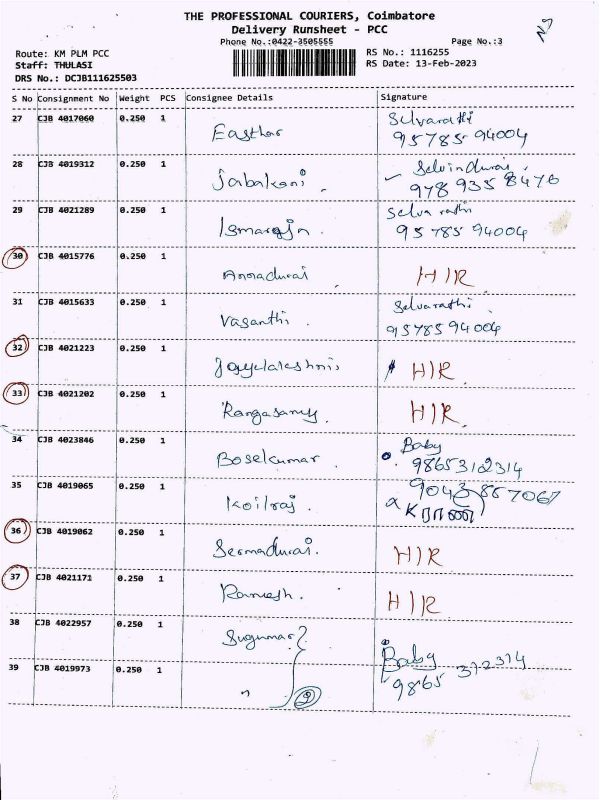 THE PROFESSIONAL COURIERS, Coimbatore
Delivery Runsheet - PCC
Phone No.:0422-3505555 Page No.:3
Route: KM PLM PCC RS No.: 1116255
Staff: THULASI RS Date: 13-Feb-2023
DRS No.: DCJB111625503
S No Consignment No Weight PCS Consignee Details Signature
27 CJB 4017060 0.250 1 Easther Selvarathi
95785 94004
28 CJB 4019312 0.250 1 Jabakani. Selvindurai.
978 935 8476
29 CJB 4021289 0.250 1 Selva rathi
95785 94004
30 CJB 4015776 0.250 1 Annadurai H/R
31 CJB 4015633 0.250 1 Vasanthi. Selvarathi
95785 94004
32 CJB 4021223 0.250 1 H/R.
33 CJB 4021202 0.250 1 Rangasamy H/R.
34 CJB 4023846 0.250 1 Bosekumar. Baby
9865312314
35 CJB 4019065 0.250 1 Koilraj.
36 CJB 4019062 0.250 1 Sermadurai. H/R
37 CJB 4021171 0.250 1 Ramesh. H/R
38 CJB 4022957 0.250 1 Sugumar Baby
9865 312314
39 CJB 4019973 0.250 1 " 2